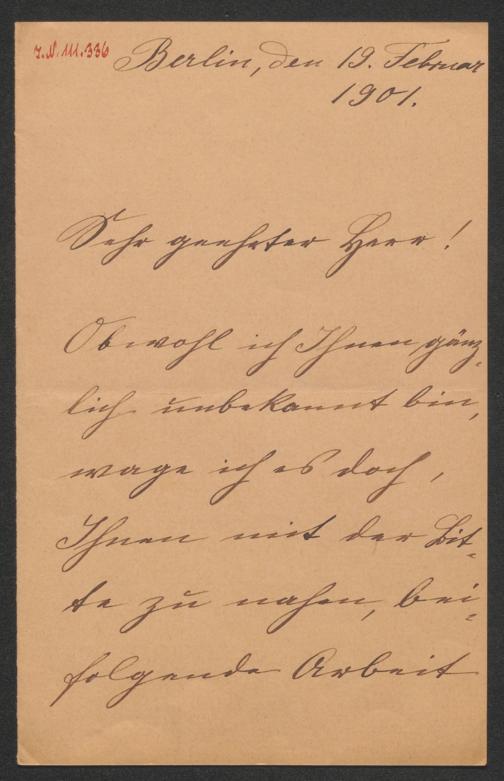 J.N. 111.336
Berlin, den 19. Februar
1901.
Sehr geehrter Herr!
Obwohl ich Ihnen gänz-
lich unbekannt bin,
wage ich es doch,
Ihnen mit der Bit-
te zu nahen, bei-
folgende Arbeit